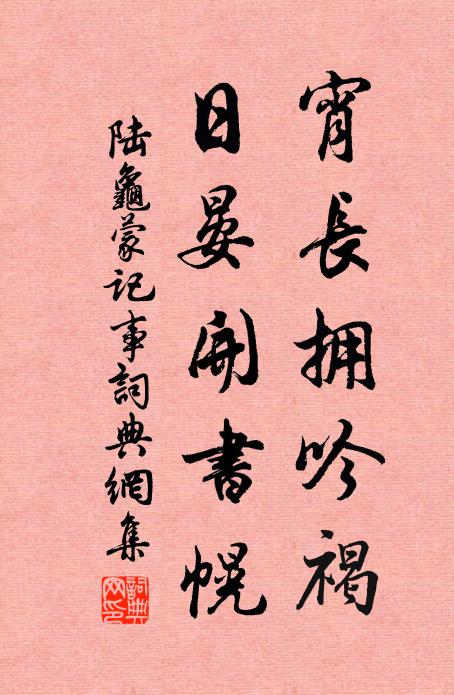 宵長拥吟褐
日晏開書幌
陸龜蒙記事詞典網集
詞典
網印